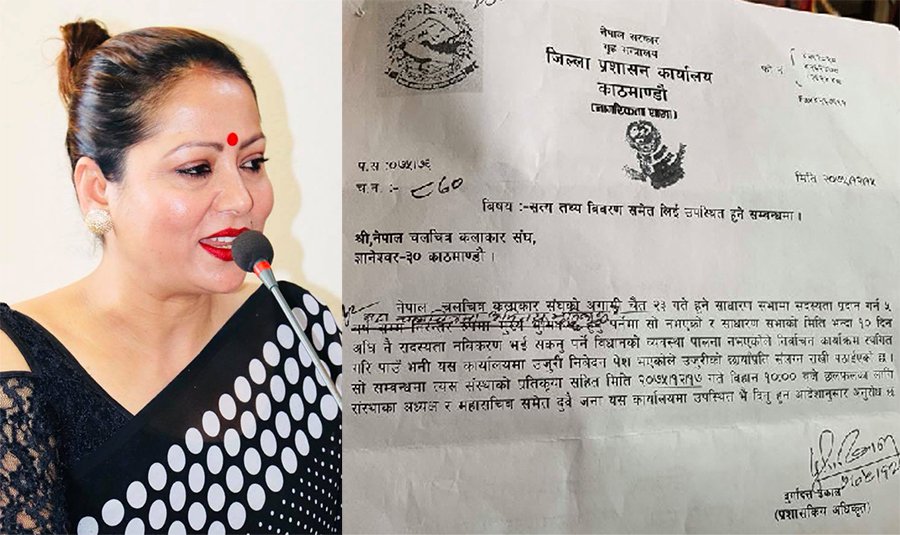 नेपाल सरकार
गृह मन्त्रालय
जिल्ला प्रशासन कार्यालय
काठमाण्डौ
(नागरिकता शाखा)
फोन
प.स :०७५।७६
च.न :- ८६०
मिति २०७५।१२।१५
विषय :-सत्य तथ्य बिबरण समेत लिई उपस्थित हुने सम्वन्धमा ।
श्री,नेपाल चलचित्र कलाकार संघ,
ज्ञानेश्वर-३० काठमाण्डौ ।
नेपाल चलचित्र कलाकार संघको अगामी चैत २३ गते हुने साधारण सभामा सदस्यता प्रदान गर्न ५
पर्नेमा सो नभएको र साधारण सभाको मिति भन्दा १० दिन
अघि नै सदस्यता नविकरण भई सक्नु पर्ने विधानको व्यवस्था पालना नभएकोले निर्वाचन कार्यक्रम स्थगित
गरि पाउँ भनी यस कार्यालयमा उजुरी निवेदन पेश भएकोले उजुरीको छायाँपति संलग्न राखी पठाईएको छ ।
सो सम्वन्धमा त्यस संस्थाको प्रतिकृया सहित मिति २०७५।१२।१७ गते विहान १०:०० बजे छलफलका लागि
संस्थाका अध्यक्ष र महासचिव समेत दुवै जना यस कार्यालयमा उपस्थित भै दिनु हुन आदेशानुसार अनुरोध छ
(प्रशासकिय अधिकृत)